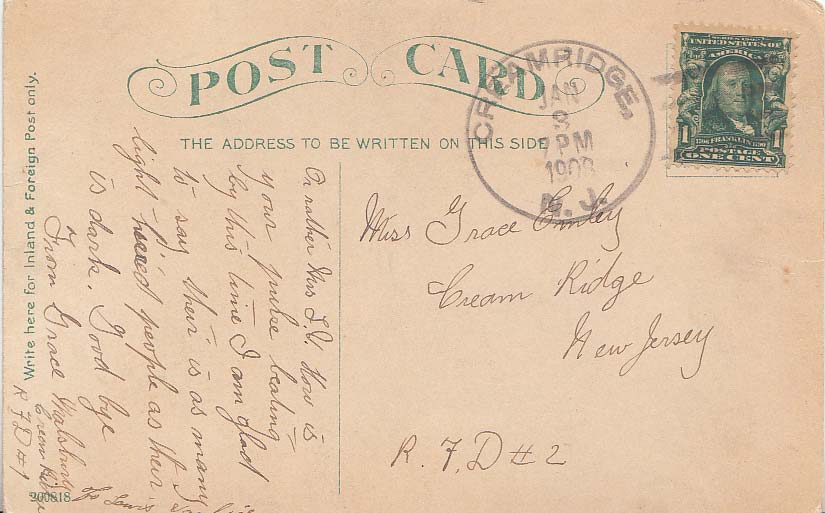 POST CARD
THE ADDRESS TO BE WRITTEN ON THIS SIDE
Write here for Inland & Foreign Post only.
CREAMRIDGE,
JAN
7 PM
1908
N. J.
SERIES 1902
UNITED STATES OF
AMERICA
1 FRANKLIN 1
POSTAGE
ONE CENT
Miss Grace Emley
Cream Ridge
New Jersey
R. F. D # 2
Or rather Mrs L. V. How is
your pulse beating
by this time I am glad
to say their is as many
light people as their
is dark. Good bye
From Grace
Cream Ridge
R F D # 1
Lewis
200818